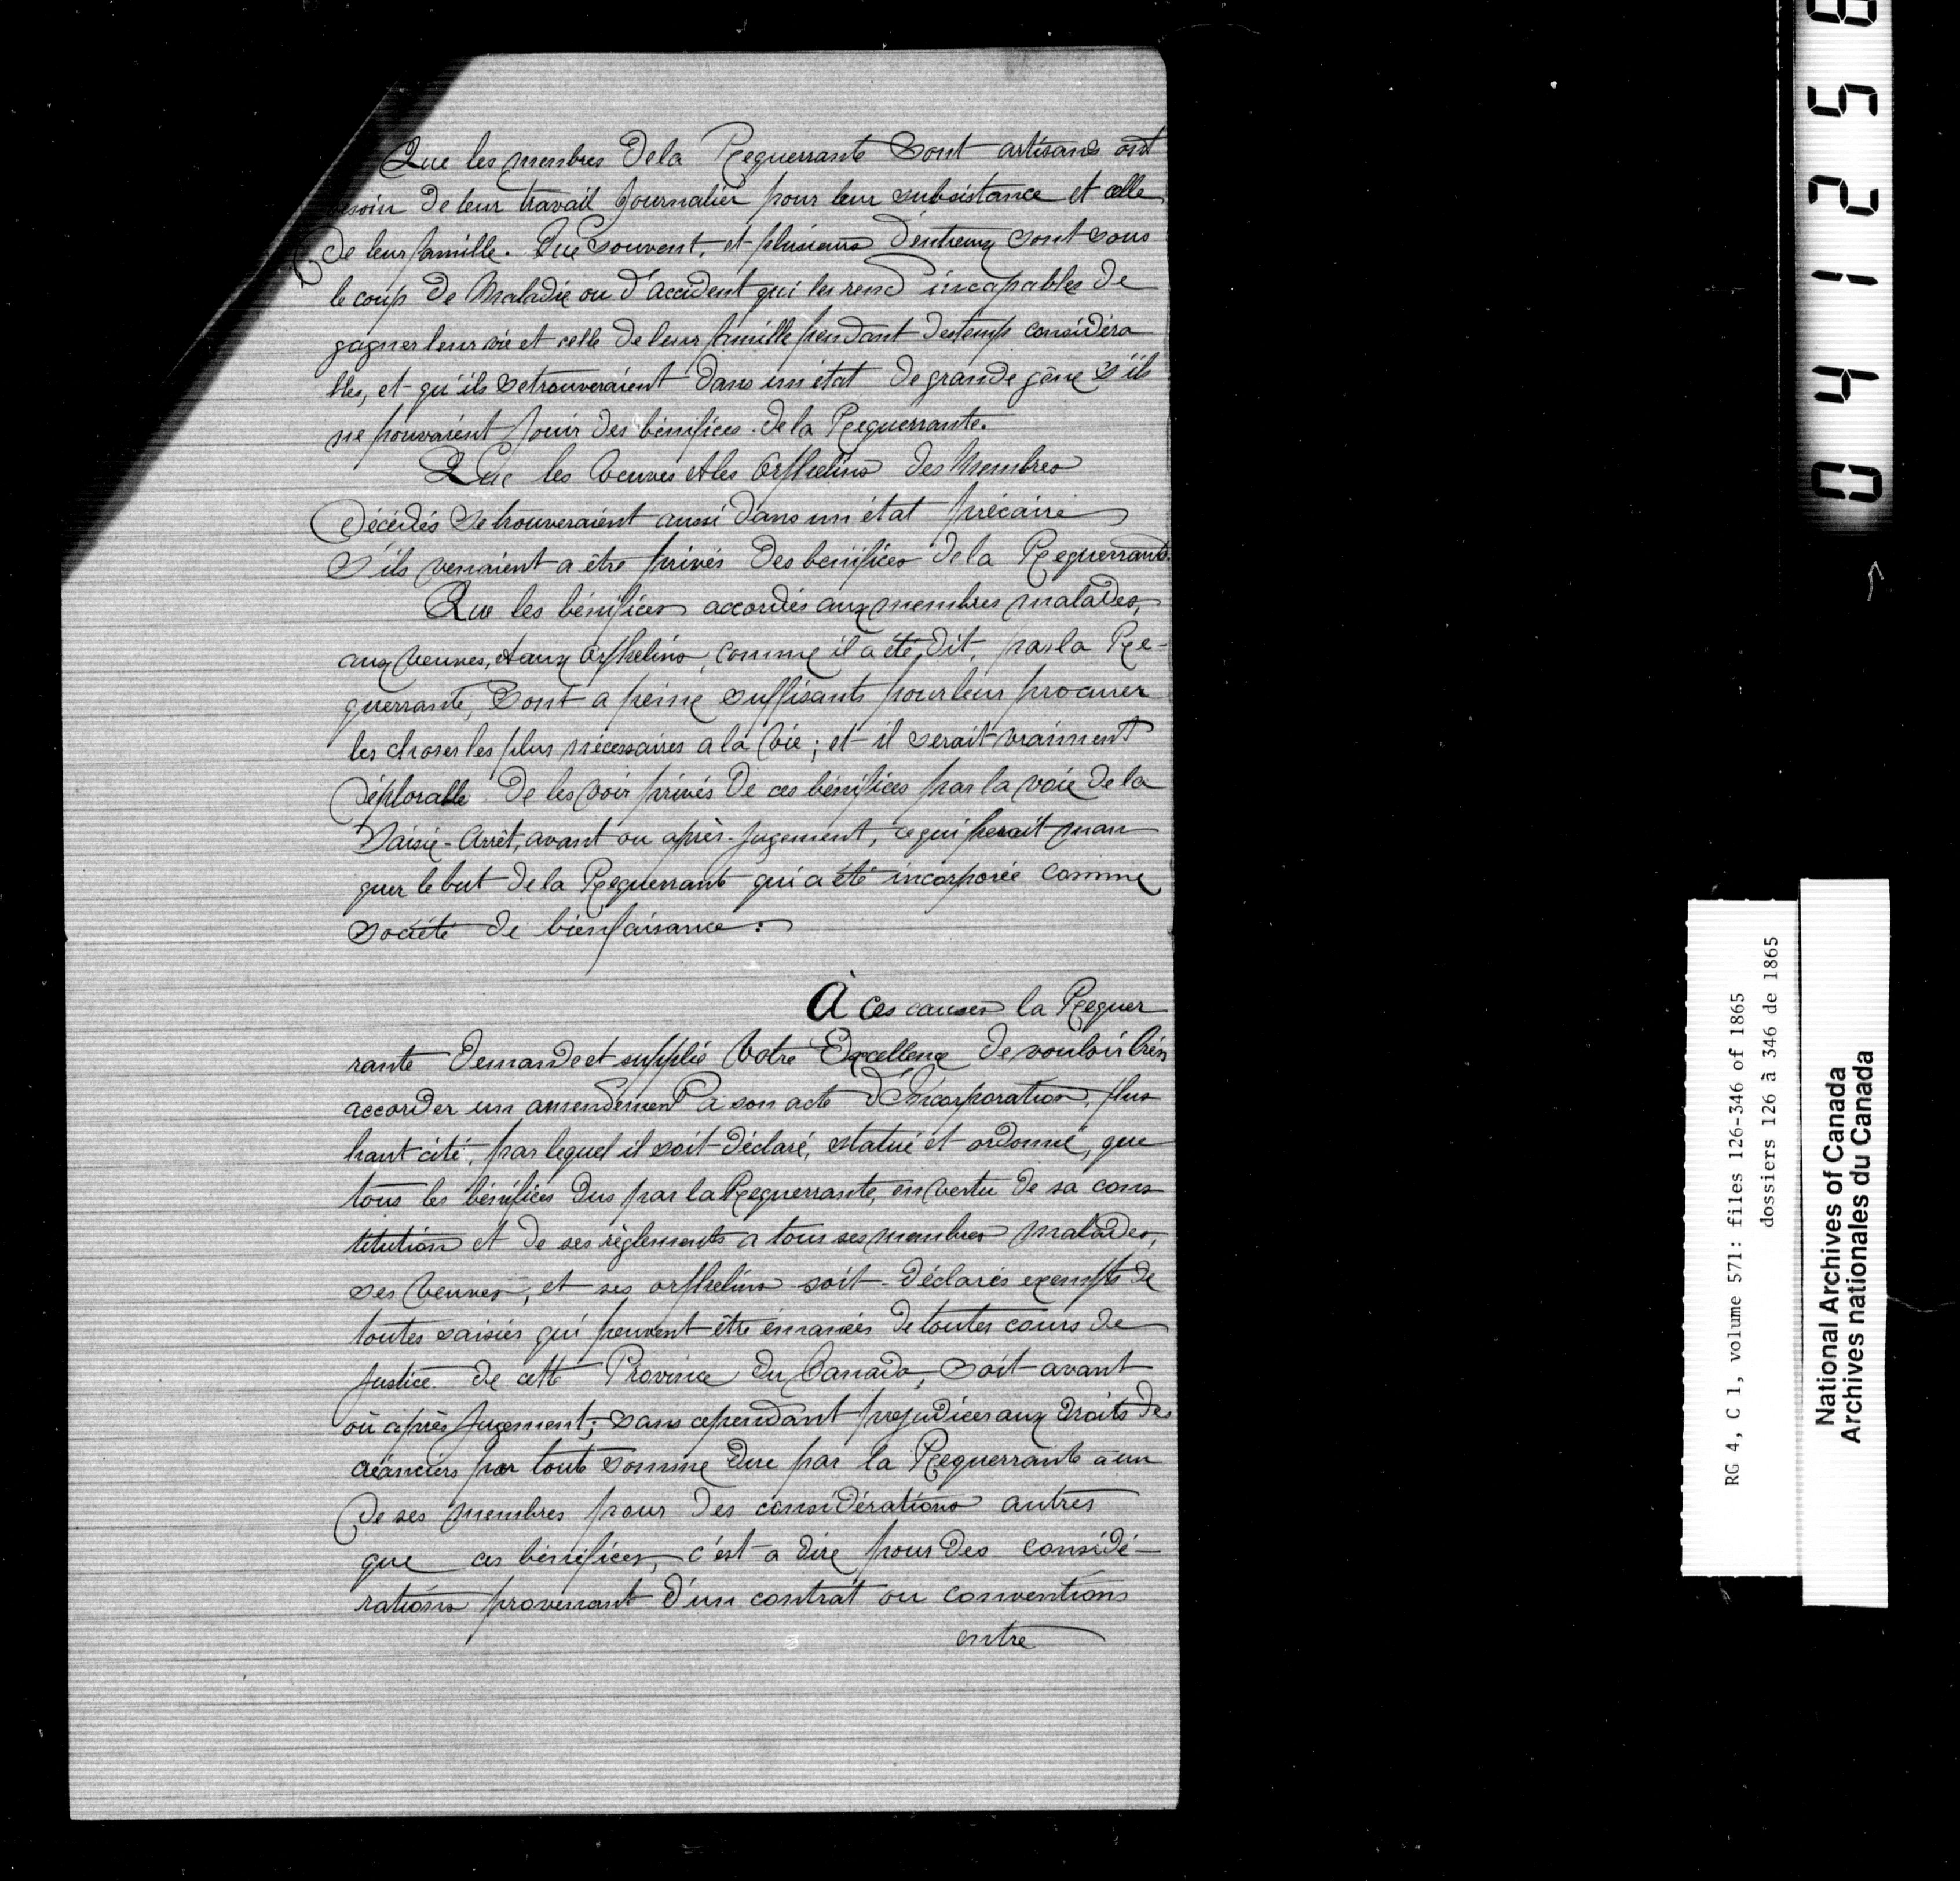 Que les membres de la Requerrante Sont artisans ont
besoin de leur travail Journalier pour leur subsistance et celle
de leur famille. Que Souvent, et plusieurs d'entreux Sont sous
le coup de Maladie ou d'accident qui les rend incapables de
gagner leur vie et celle de leur famille pendant des temp considéra
bles, et qu'ils se trouveraient dans un état de grande gêne s'ils
ne pouvaient Jouir des bénifices de la Requerrante.
Que les Veuves et les Orphelins des Membres
Décédés Se trouveraient aussi dans un état précaire
S'ils venaient a être privés des benifices de la Requerrante.
Que les bénifices accordés aux membres malades,
aux Veuves, et aux Orphelins, comme il a été dit, par la Re-
querrante, Sont a peine Suffisants pour leur procurer
les choses les plus nécessaires a la Vie ; et il serait vraiment
Déplorable de les Voir privés de ces bénifices par la voie de la
Saisie-Arrêt, avant ou après-Jugement, ce qui ferait man
quer le but de la Requerrante qui a été incorporée comme
Société de bienfaisance :
À Ces causes la Requer
rante Demande et supplie Votre Excellence de vouloir bien
accorder un amendement a son acte d'Incorporation, plus
haut cité, par lequel il soit déclaré, statué et ordonné, que
tous les bénifices dus par la Requerrante, en vertu de sa cons
titution et de ses règlements a tous ses membres malades,
ses Veuves, et ses orphelins soit déclarés exempts de
toutes saisies qui peuvent être émanées de toutes cours de
Justice de cette Province du Canada, Soit avant
où après Jugement ; Sans cependant prejudicier aux droits des
créanciers pour toute Somme due par la Requerrante a un
de ses membres pour des considérations autres
que ces bénifices, c'est a dire pour des considé-
rations provenant d'un contrat ou conventions
entre
0 4 1 2 5 8
RG 4, C 1, volume 571: files 126-346 of 1865
dossiers 126 à 346 de 1865
National Archives of Canada
Archives nationales du Canada